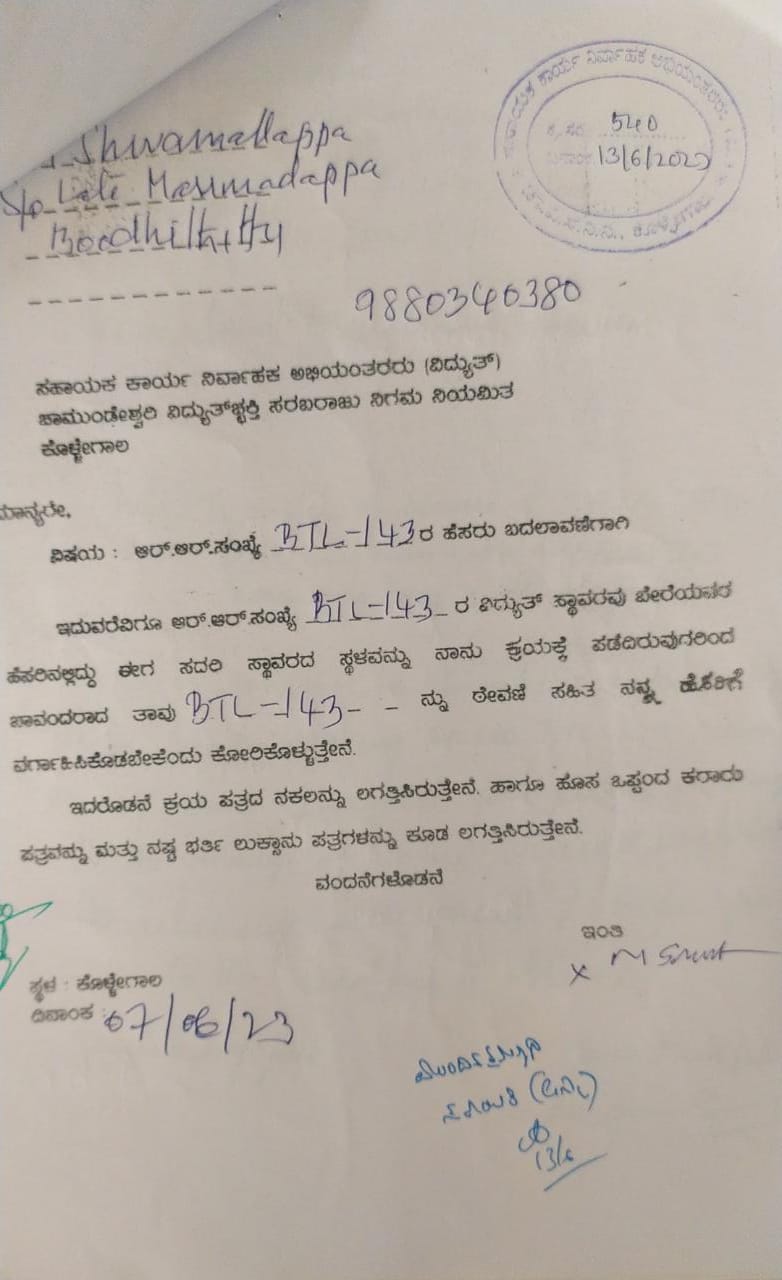 Shivamallappa
S/o Late Masimadappa
ಸಹಾಯಕ ಕಾರ್ಯ ನಿರ್ವಾಹಕ ಅಭಿಯಂತರರು
ಕ್ರ.ಸಂ. 540
13/6/2023
ಕೊಳ್ಳೇಗಾಲ
9880340380
ಸಹಾಯಕ ಕಾರ್ಯ ನಿರ್ವಾಹಕ ಅಭಿಯಂತರರು (ವಿದ್ಯುತ್)
ಚಾಮುಂಡೇಶ್ವರಿ ವಿದ್ಯುತ್‌ಚ್ಛಕ್ತಿ ಸರಬರಾಜು ನಿಗಮ ನಿಯಮಿತ
ಕೊಳ್ಳೇಗಾಲ
ಮಾನ್ಯರೇ,
ವಿಷಯ : ಆರ್.ಆರ್.ಸಂಖ್ಯೆ BTL-143 ರ ಹೆಸರು ಬದಲಾವಣೆಗಾಗಿ
ಇದುವರೆವಿಗೂ ಆರ್.ಆರ್.ಸಂಖ್ಯೆ BTL-143 ರ ವಿದ್ಯುತ್ ಸ್ಥಾವರವು ಬೇರೆಯವರ
ಹೆಸರಿನಲ್ಲಿದ್ದು ಈಗ ಸದರಿ ಸ್ಥಾವರದ ಸ್ಥಳವನ್ನು ನಾನು ಕ್ರಯಕ್ಕೆ ಪಡೆದಿರುವುದರಿಂದ
ಬಾವಂದರಾದ ತಾವು BTL-143 ನ್ನು ಠೇವಣಿ ಸಹಿತ ನನ್ನ ಹೆಸರಿಗೆ
ವರ್ಗಾಹಿಸಿಕೊಡಬೇಕೆಂದು ಕೋರಿಕೊಳ್ಳುತ್ತೇನೆ.
ಇದರೊಡನೆ ಕ್ರಯ ಪತ್ರದ ನಕಲನ್ನು ಲಗತ್ತಿಸಿರುತ್ತೇನೆ. ಹಾಗೂ ಹೊಸ ಒಪ್ಪಂದ ಕರಾರು
ಪತ್ರವನ್ನು ಮತ್ತು ನಷ್ಟ ಭರ್ತಿ ಲುಕ್ಸಾನು ಪತ್ರಗಳನ್ನು ಕೂಡ ಲಗತ್ತಿಸಿರುತ್ತೇನೆ.
ವಂದನೆಗಳೊಡನೆ
ಇಂತಿ
x
ಸ್ಥಳ : ಕೊಳ್ಳೇಗಾಲ
ದಿನಾಂಕ : 07/06/23
13/6